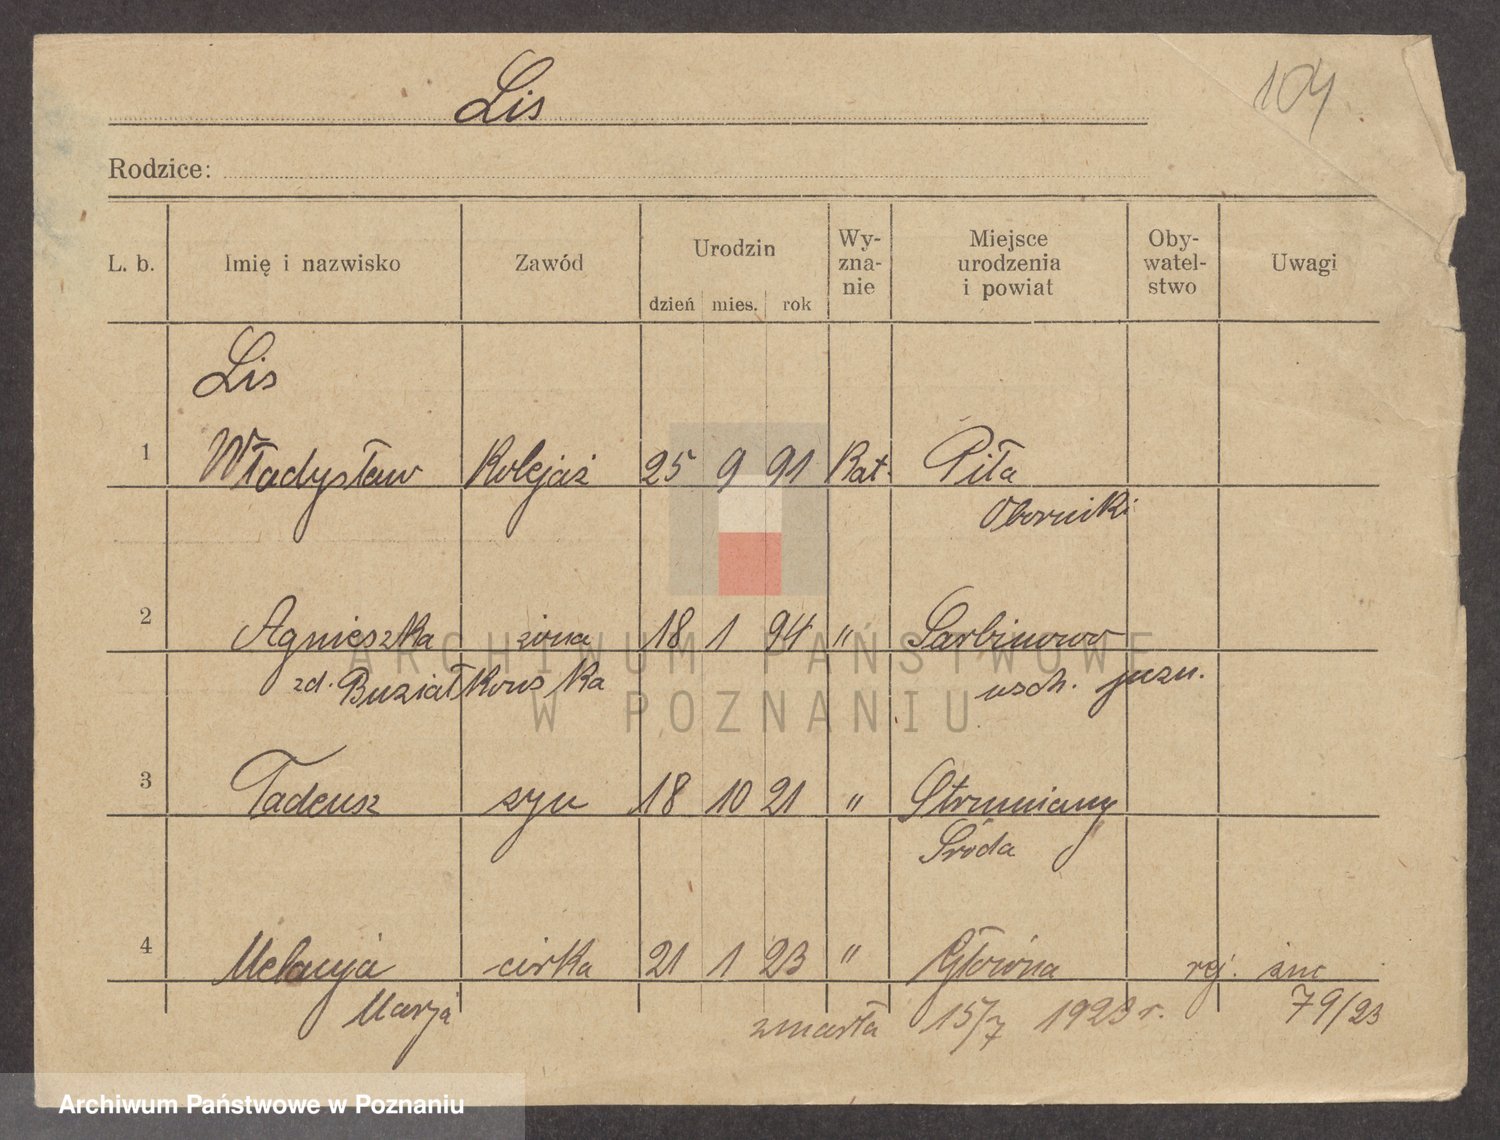 Lis
104
Rodzice:
L. b. Imię i nazwisko Zawód Urodzin dzień mies. rok Wy-zna-nie Miejsce urodzenia i powiat Oby-watel-stwo Uwagi
Lis
1 Władysław Kolejaż 25 9 91 Kat. Piła
Oborniki
2 Agnieszka żona 18 1 94 " Sarbinowo
zd. Buziałkowska wsch. pozn.
3 Tadeusz syn 18 10 21 " Strumiany
Środa
4 Melanja córka 21 1 23 " Główna rej.
Marja zmarła 15/7 1923 r. 79/23
ARCHIWUM PAŃSTWOWE
W POZNANIU
Archiwum Państwowe w Poznaniu